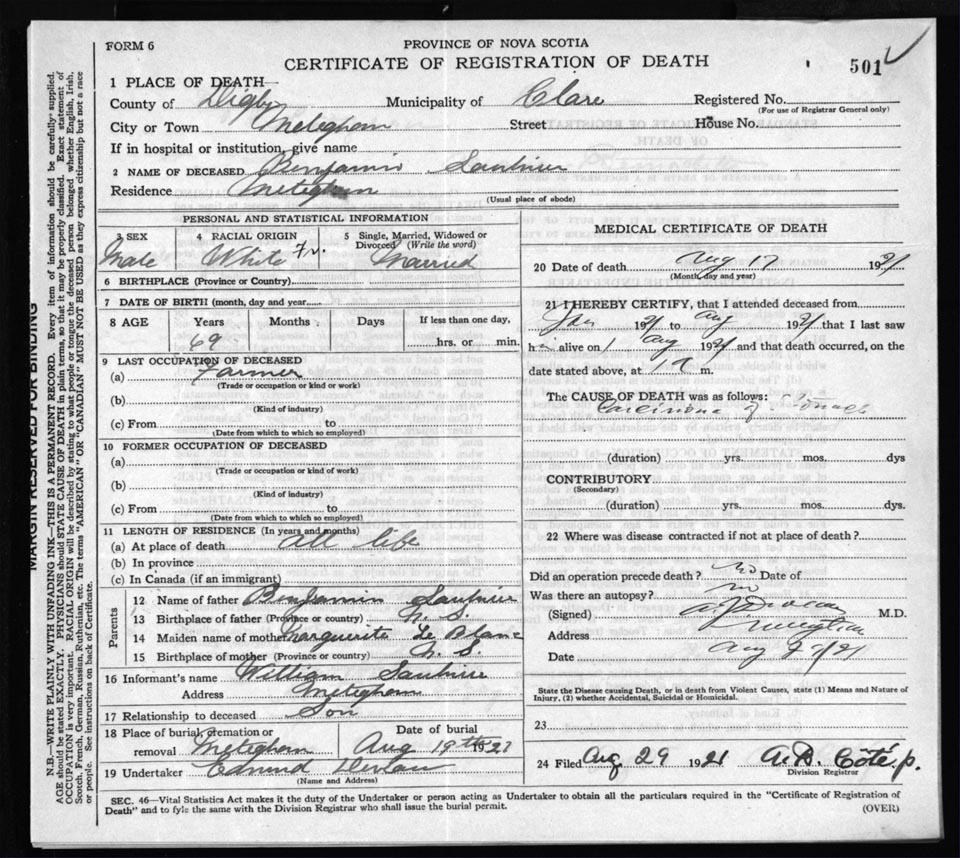 FORM 6
PROVINCE OF NOVA SCOTIA
CERTIFICATE OF REGISTRATION OF DEATH
501
MARGIN RESERVED FOR BINDING
N.B.—WRITE PLAINLY WITH UNFADING INK—THIS IS A PERMANENT RECORD. Every item of information should be carefully supplied.
AGE should be stated EXACTLY. PHYSICIANS should STATE CAUSE OF DEATH in plain terms, so that it may be properly classified. Exact statement of
OCCUPATION is very important. RACIAL ORIGIN will be described by stating to what people or tongue the deceased person belonged whether English, Irish,
Scotch, French, German, Russian, Ruthenian, etc. The terms "AMERICAN" OR "CANADIAN" MUST NOT BE USED as they express citizenship but not a race
or people. See instructions on back of Certificate.
1 PLACE OF DEATH
County of Digby Municipality of Clare Registered No.
(For use of Registrar General only)
City or Town Meteghan Street House No.
If in hospital or institution, give name
2 NAME OF DECEASED Benjamin Saulnier
Residence Meteghan
(Usual place of abode)
PERSONAL AND STATISTICAL INFORMATION
3 SEX Male
4 RACIAL ORIGIN White Fr.
5 Single, Married, Widowed or Divorced (Write the word) Married
6 BIRTHPLACE (Province or Country)
7 DATE OF BIRTH (month, day and year)
8 AGE Years Months Days If less than one day,
69 hrs. or min.
9 LAST OCCUPATION OF DECEASED
(a) Farmer
(Trade or occupation or kind or work)
(b)
(Kind of industry)
(c) From to
(Date from which to which so employed)
10 FORMER OCCUPATION OF DECEASED
(a)
(Trade or occupation or kind of work)
(b)
(Kind of industry)
(c) From to
(Date from which to which so employed)
11 LENGTH OF RESIDENCE (In years and months)
(a) At place of death All life
(b) In province
(c) In Canada (if an immigrant)
Parents
12 Name of father Benjamin Saulnier
13 Birthplace of father (Province or country) N. S.
14 Maiden name of mother Marguerite Le Blanc
15 Birthplace of mother (Province or country) N. S.
16 Informant's name William Saulnier
Address Meteghan
17 Relationship to deceased Son
18 Place of burial, cremation or removal Meteghan Date of burial Aug 19th 1921
19 Undertaker
(Name and Address)
MEDICAL CERTIFICATE OF DEATH
20 Date of death Aug 17 1921
(Month, day and year)
21 I HEREBY CERTIFY, that I attended deceased from
Jan 1921 to Aug 1921 that I last saw
him alive on Aug 1921 and that death occurred, on the
date stated above, at m.
The CAUSE OF DEATH was as follows:
Carcinoma of Stomach
(duration) yrs. mos. dys
CONTRIBUTORY
(Secondary)
(duration) yrs. mos. dys.
22 Where was disease contracted if not at place of death?
Did an operation precede death? no Date of
Was there an autopsy? no
(Signed) M.D.
Address
Date Aug
State the Disease causing Death, or in death from Violent Causes, state (1) Means and Nature of
Injury, (2) whether Accidental, Suicidal or Homicidal.
23
24 Filed Aug 29 1921 A. D. Côté p.
Division Registrar
SEC. 46—Vital Statistics Act makes it the duty of the Undertaker or person acting as Undertaker to obtain all the particulars required in the "Certificate of Registration of
Death" and to fyle the same with the Division Registrar who shall issue the burial permit.
(OVER)